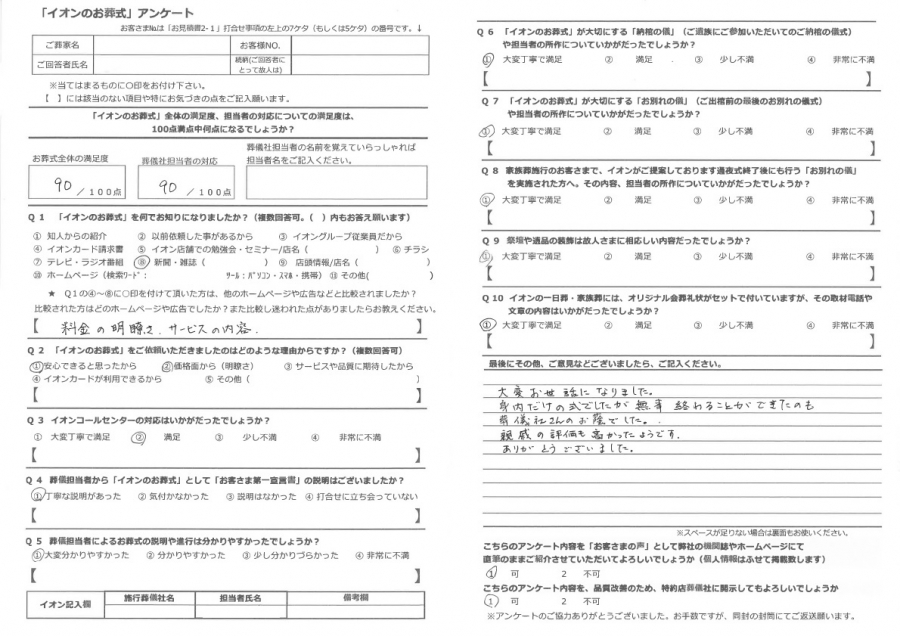 「イオンのお葬式」アンケート
お客さまNo.は「お見積書2-1」打合せ事項の左上の7ケタ（もしくは5ケタ）の番号です。↓
ご葬家名 お客様NO.
ご回答者氏名 続柄(ご回答者にとって故人は)
※当てはまるものに○印をお付け下さい。
【　】には該当のない項目や特にお気づきの点をご記入願います。
「イオンのお葬式」全体の満足度、担当者の対応についての満足度は、
100点満点中何点になるでしょうか？
お葬式全体の満足度
90 / 100点
葬儀社担当者の対応
90 / 100点
葬儀社担当者の名前を覚えていらっしゃれば
担当者名をご記入ください。
Q 1 「イオンのお葬式」を何でお知りになりましたか？（複数回答可。（　）内もお答え願います）
① 知人からの紹介 ② 以前依頼した事があるから ③ イオングループ従業員だから
④ イオンカード請求書 ⑤ イオン店舗での勉強会・セミナー/店名（　） ⑥ チラシ
⑦ テレビ・ラジオ番組 ⑧ 新聞・雑誌（　） ⑨ 店頭情報/店名（　）
⑩ ホームページ（検索ﾜｰﾄﾞ： ﾂｰﾙ：ﾊﾟｿｺﾝ・ｽﾏﾎ・携帯） ⑪ その他(　)
★ Q1の④～⑧に○印を付けて頂いた方は、他のホームページや広告などと比較されましたか？
比較された方はどのホームページや広告でしたか？また比較し迷われた点がありましたらお教えください
【 料金の明瞭さ、サービスの内容. 】
Q 2 「イオンのお葬式」をご依頼いただきましたのはどのような理由からですか？（複数回答可）
①安心できると思ったから ②価格面から（明瞭さ） ③ サービスや品質に期待したから
④ イオンカードが利用できるから ⑤ その他（　）
【　】
Q 3 イオンコールセンターの対応はいかがだったでしょうか？
① 大変丁寧で満足 ② 満足 ③ 少し不満 ④ 非常に不満
【　】
Q 4 葬儀担当者から「イオンのお葬式」として「お客さま第一宣言書」の説明はございましたか？
①丁寧な説明があった ② 気付かなかった ③ 説明はなかった ④ 打合せに立ち会っていない
【　】
Q 5 葬儀担当者によるお葬式の説明や進行は分かりやすかったでしょうか？
①大変分かりやすかった ② 分かりやすかった ③ 少し分かりづらかった ④ 非常に不満
【　】
イオン記入欄 施行葬儀社名 担当者氏名 備考欄
Q 6 「イオンのお葬式」が大切にする「納棺の儀」（ご遺族にご参加いただいてのご納棺の儀式）
や担当者の所作についていかがだったでしょうか？
① 大変丁寧で満足 ② 満足 ③ 少し不満 ④ 非常に不満
【　】
Q 7 「イオンのお葬式」が大切にする「お別れの儀」（ご出棺前の最後のお別れの儀式）
や担当者の所作についていかがだったでしょうか？
① 大変丁寧で満足 ② 満足 ③ 少し不満 ④ 非常に不満
【　】
Q 8 家族葬施行のお客さまで、イオンがご提案しております通夜式終了後にも行う「お別れの儀」
を実施された方へ。その内容、担当者の所作についていかがだったでしょうか？
① 大変丁寧で満足 ② 満足 ③ 少し不満 ④ 非常に不満
【　】
Q 9 祭壇や遺品の装飾は故人さまに相応しい内容だったでしょうか？
① 大変丁寧で満足 ② 満足 ③ 少し不満 ④ 非常に不満
【　】
Q 10 イオンの一日葬・家族葬には、オリジナル会葬礼状がセットで付いていますが、その取材電話や
文章の内容はいかがだったでしょうか？
① 大変丁寧で満足 ② 満足 ③ 少し不満 ④ 非常に不満
【　】
最後にその他、ご意見などございましたら、ご記入ください。
大変お世話になりました。
身内だけの式でしたが無事終わることができたのも
葬儀社さんのお蔭でした。
親戚の評価も高かったようです.
ありがとうございました。
※スペースが足りない場合は裏面もお使いください。
こちらのアンケート内容を「お客さまの声」として弊社の機関誌やホームページにて
直筆のままご紹介させていただいてよろしいでしょうか（個人情報はふせて掲載致します）
1 可 2 不可
こちらのアンケート内容を、品質改善のため、特約店葬儀社に開示してもよろしいでしょうか
1 可 2 不可
※アンケートのご協力ありがとうございました。お手数ですが、同封の封筒にてご返送願います。